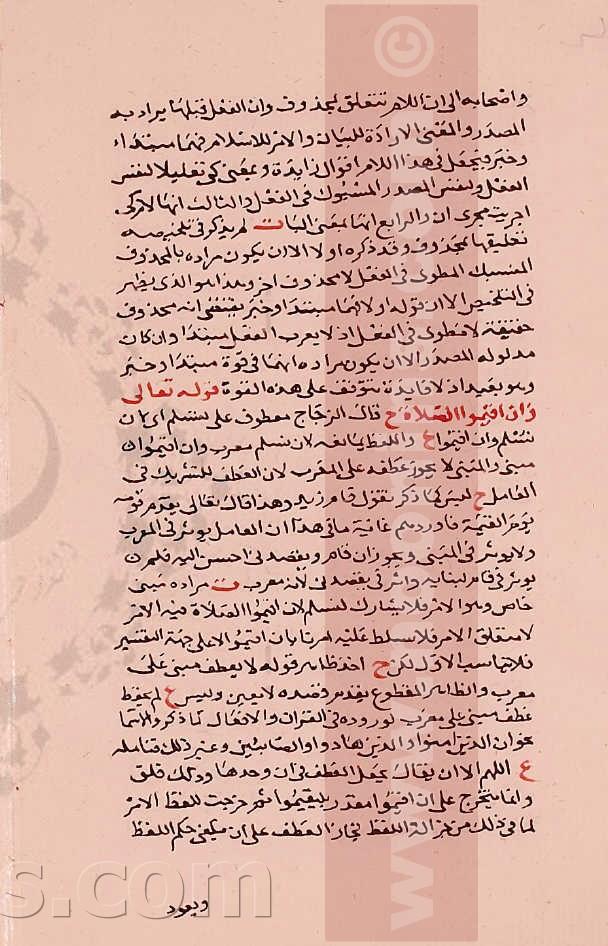 واصحابه الى ان اللام تتعلق بمحذوف وان الفعل قبلها يراد به
المصدر والمعنى الارادة للبيان والامر للاسلام فهما مبتداء
وخبر فيتحصل في هذه اللام اقوال زايدة وبمعنى كي تعليلا لنفس
الفعل ولنفس المصدر المسبوك في الفعل والثالث انها لام كي
اجريت مجرى ان والرابع انها بمعنى الباء ت لم يذكر في تلخيصه
تعليقها بمحذوف وقد ذكره اولا الا ان يكون مراده بالمحذوف
المنسبك المطوى في الفعل لا محذوف اخر وهذا هو الذي يظهر
في التلخيص الا ان قوله اولا انهما مبتدا وخبر يقتضي انه محذوف
حقيقة لا مطوى في الفعل اذ لا يعرب الفعل مبتدا وان كان
مدلوله المصدر الا ان يكون مراده انهما في قوة مبتدا وخبر
وهو بعيد اذ لا فايدة تتوقف على هذه القوة قوله تعالى
وان اقيموا الصلاة ع قال الزجاج معطوف على لنسلم اي بان
نسلم وان اقيموا ع واللفظ يمانعه لان نسلم معرب وان اقيموا
مبنى والمبنى لا يجوز عطفه على المعرب لان العطف للتشريك في
العامل ح ليس كما ذكر تقول قام زيد وهذا قال تعالى يقدم قومه
يوم القيمة فاوردهم غاية ما في هذا ان العامل يوثر في المعرب
ولا يوثر في المبنى ويجوز ان قام ويقصدني احسن اليه فلم
يوثر في قام لبنايه واثر في يقصدني لانه معرب ت مراده مبنى
خاص وهو الامر فلا يشارك لنسلم لان اقيموا الصلاة فيه الامر
لا متعلق الامر فلا يتسلط عليه امرنا بان اقيموا الا على جهة التفسير
فلا يناسب الاول لكن ح اخذ ظاهر قوله لا يعطف مبنى على
معرب والظاهر المقطوع بعدم قصده لا يعين وليس ع لم يحفظ
عطف مبنى على معرب لوروده في القران والافعال لما ذكر والاسما
نحو ان الذين امنوا والذين هادوا والصابئين وغير ذلك فتامله
ع اللهم الا ان يقال بجعل العطف في ان وحدها وذلك قلق
وانما يتخرج على ان اقيموا مقدر بليقيموا ثم خرجت للفظ الامر
لما في ذلك من جزالة اللفظ فجاز العطف على ان يلغى حكم اللفظ
ويعود
www.
s.com
©